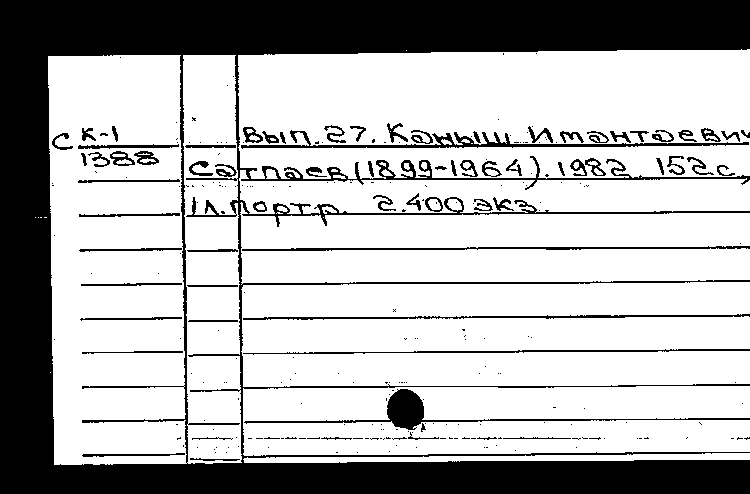 С К-1 Вып. 27. Каныш Имантаевич
1388 Сатпаев (1899-1964). 1982. 152 с.,
1 л. портр. 2.400 экз.